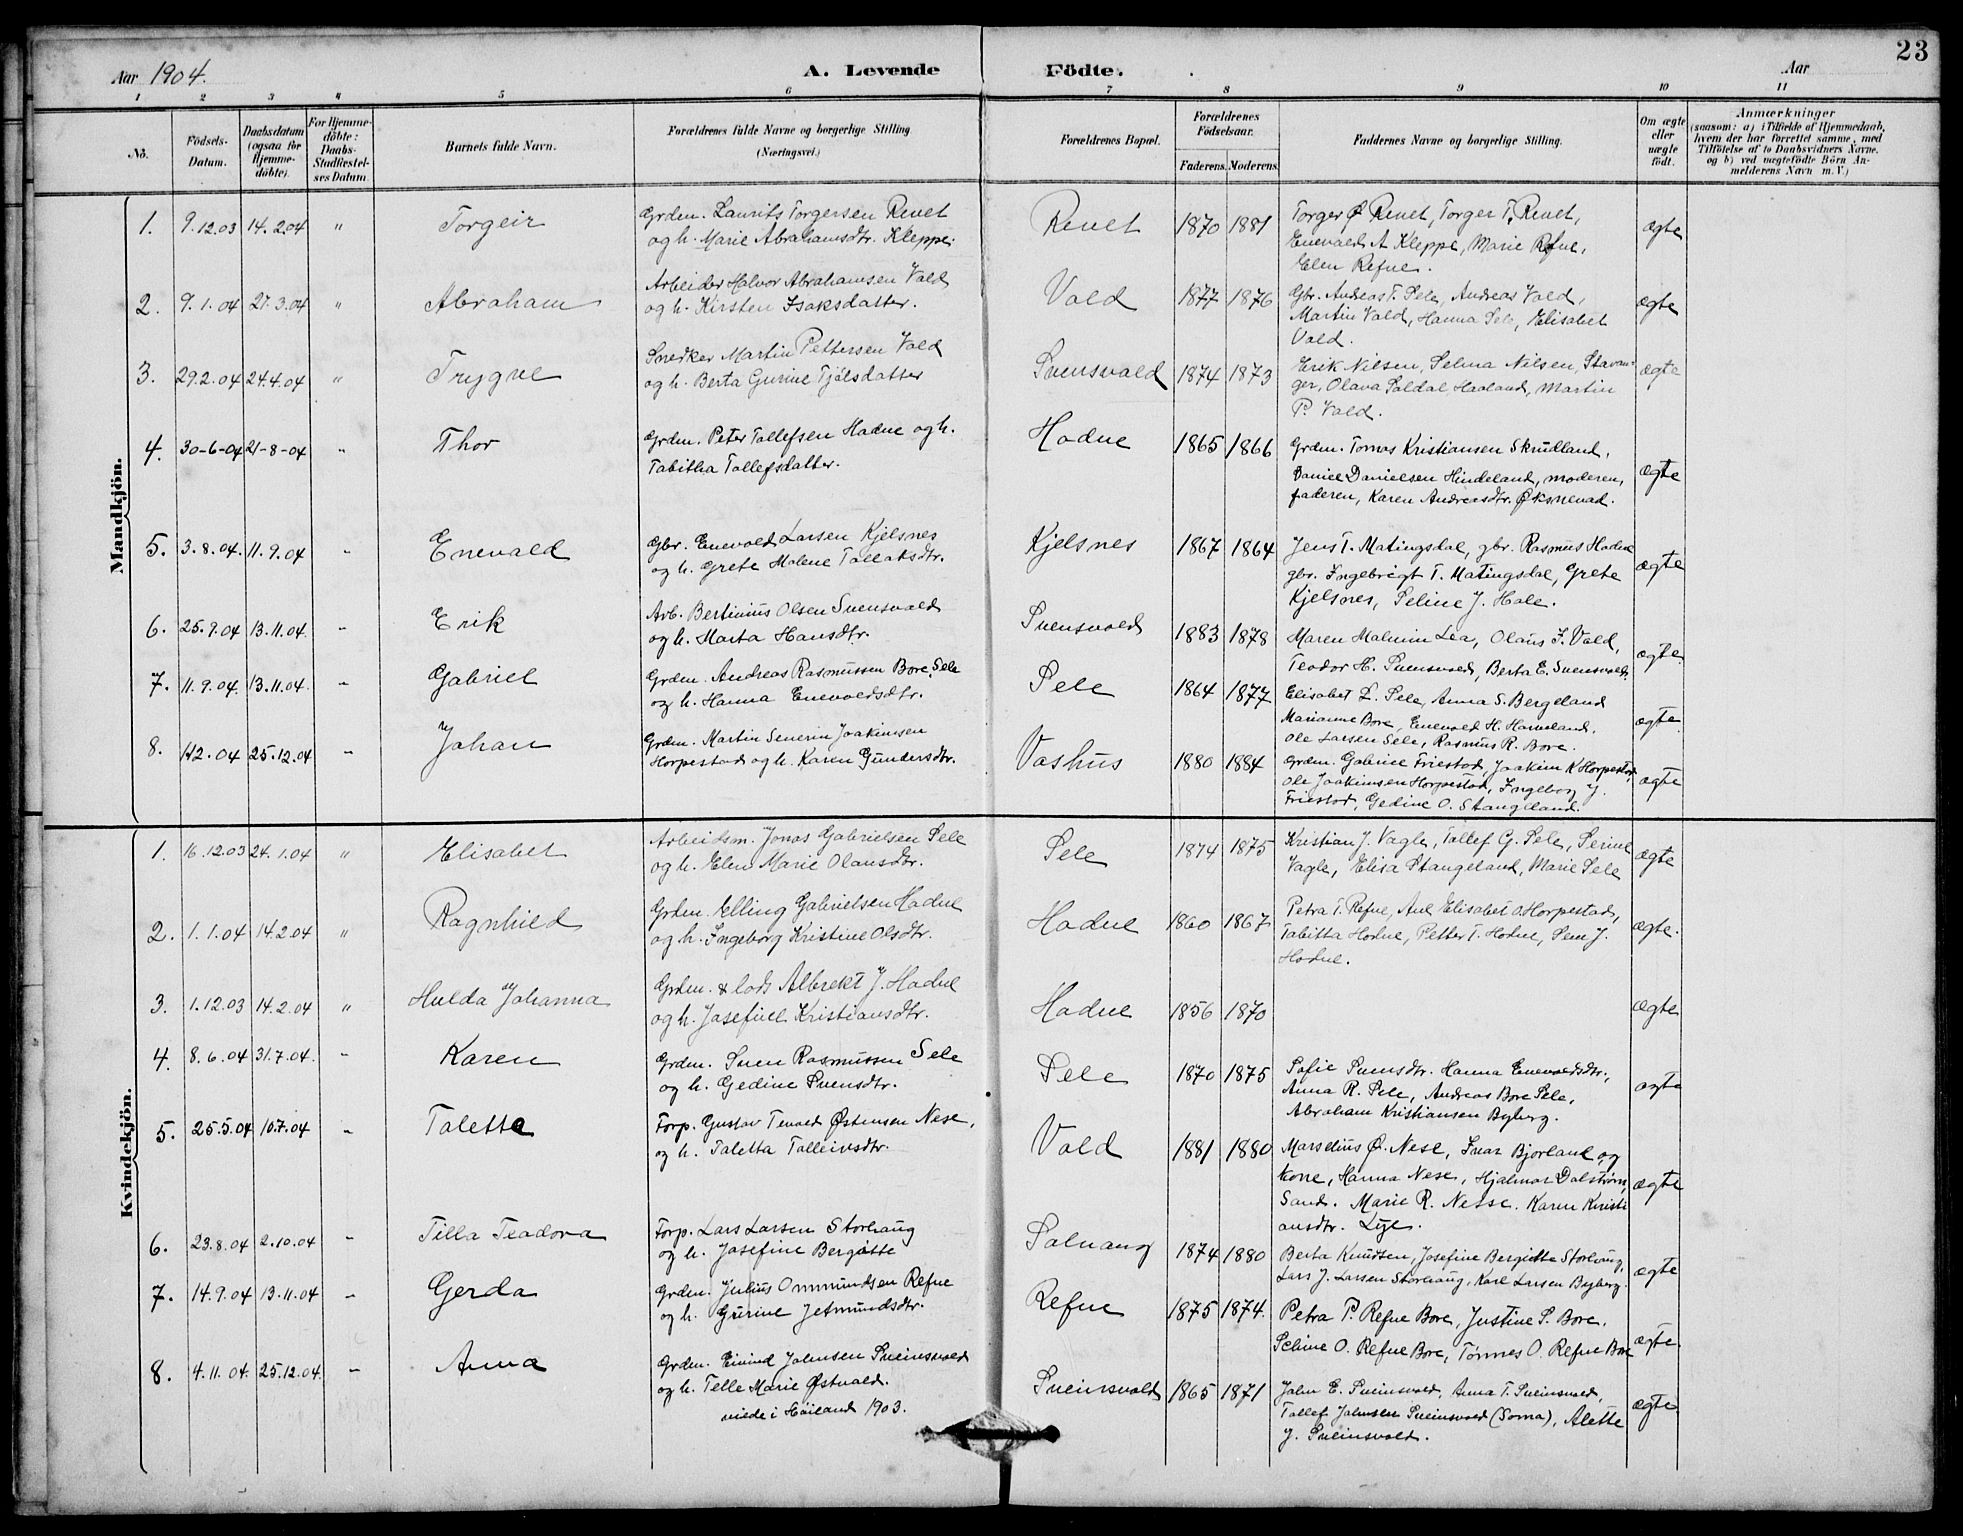 23
Aar 1904. A. Levende Födte. Aar
1 2 3 4 5 6 7 8 9 10 11
No.
Födsels-
Datum.
Daabsdatum
(ogsaa for
Hjemme-
döbte).
For Hjemme-
döbte:
Daabs-
Stadfæstel-
ses Datum.
Barnets fulde Navn.
Forældrenes fulde Navne og borgerlige Stilling.
(Næringsvei.)
Forældrenes Bopæl.
Forældrenes
Födselsaar.
Faderens. Moderens.
Faddernes Navne og borgerlige Stilling.
Om ægte
eller
uægte
födt.
Anmærkninger
(saasom: a) i Tilfælde af Hjemmedaab,
hvem der har forrettet samme, med
Tilföielse af to Daabsvidners Navne.
og b) ved uægtefödte Börn An-
melderens Navn m. V.)
Mandkjön.
1. 9.12.03 14.2.04 " Torgeir
Grdm. Laurits Torgersen Revet
og h. Marie Abrahamsdtr. Kleppe.
Revet 1870 1881
Torger Ø Revet, Torger T. Revet,
Enevald A Kleppe, Marie Refne,
Elen Refne.
ægte
2. 9.1.04 27.3.04 " Abraham
Arbeider Halvor Abrahamsen Vold
og h. Kirsten Isaksdatter.
Vold 1877 1876
Gbr. Andreas T. Sele, Andreas Vold,
Martin Vald, Hanna Sele, Elisabet
Vold.
ægte
3. 29.2.04 24.4.04 " Trygve
Snedker Martin Pettersen Vold
og h. Berta Gurine Tjølsdatter
Svensvold 1874 1873
Erik Nilsen, Selma Nilsen, Stavan-
ger, Olava Soldal Haaland, Martin
P. Vold.
ægte
4. 30-6-04 21-8-04 " Thor
Grdm. Peter Tollefsen Hodne og h.
Tabitha Tollefsdatter.
Hodne 1865 1866
Grdm. Tomas Kristiansen Skrudland,
Daniel Danielsen Hindeland, moderen,
faderen, Karen Andreasdtr. Øksnevad.
ægte
5. 3.8.04. 11.9.04 " Enevald
Gbr. Enevold Larsen Kjelsnes
og h. Grete Malene Tollaksdtr.
Kjelsnes 1867 1864
Jens T. Matingsdal, gbr. Rasmus Hodne
gbr. Ingebrigt T. Matingsdal, Grete
Kjelsnes, Seline J. Hole.
ægte
6. 25.9.04 13.11.04. " Erik
Arb. Bertinius Olsen Svensvold
og h. Marta Hansdtr.
Svensvold 1883 1878
Maren Malmin Lea, Olaus I. Vold,
Teodor H. Svensvold, Berta E. Svensvold
ægte.
7. 11.9.04. 13.11.04. " Gabriel
Grdm. Andreas Rasmussen Bore Sele
og h. Hanna Enevoldsdtr.
Sele 1864 1877
Elisabet L. Sele, Anna S. Bergeland
Marianne Bore, Enevold H. Haneland,
Ole Larsen Sele, Rasmus R. Bore.
ægte.
8. 25.12.04 " Johan
Grdm. Martin Severin Joakimsen
Horpestad og h. Karen Gundersdtr.
Vashus 1880 1884
Grdm. Gabriel Friestad, Joakim K Horpestad,
Ole Joakimsen Horpestad, Ingeborg J.
Friestad, Gedine O. Stangeland.
ægte
Kvindekjön.
1. 16.12.03 24.1.04 " Elisabet
Arbeidsm. Jonas Gabrielsen Sele
og h. Elen Marie Olausdtr.
Sele 1874 1875
Kristian J. Vagle, Tollef G. Sele, Serine
Vagle, Elisa Stangeland, Marie Sele
ægte
2. 1.1.04 14.2.04 " Ragnhild
Grdm. Elling Gabrielsen Hodne
og h. Ingeborg Kristine Olsdtr.
Hodne 1860 1867
Petra T. Refne, Ane Elisabet O Horpestad,
Tabitta Hodne, Petter T. Hodne, Sem J.
Hodne.
ægte.
3. 1.12.03 14.2.04 " Hulda Johanna
Grdm. & lods Albrekt J. Hodne
og h. Josefine Kristiansdtr.
Hodne 1856 1870
ægte
4. 8.6.04 31.7.04. " Karen
Grdm. Sven Rasmussen Sele
og h. Gedine Svensdtr.
Sele 1870 1875
Sofie Svensdtr. Hanna Enevoldsdtr.,
Anna R. Sele, Andreas Bore Sele,
Abraham Kristiansen Byberg.
ægte
5. 25.5.04 10.7.04 " Taletta
Forp. Gustav Tevold Østensen Nese,
og h. Taletta Talleivsdtr.
Vold 1881 1880
Marselius Ø. Nese, Ivar Bjorland og
kone, Hanna Nese, Hjalmar Dalstrøm,
Sand. Marie R. Nesse. Karen Kristi
ansdtr. Lye.
ægte
6. 23.8.04 2.10.04 " Tilla Teodora
Forp. Lars Larsen Storhaug
og h. Josefine Bergitte
Solvang 1874 1880
Berta Knudsen, Josefine Bergitte Storhaug,
Lars J. Larsen Storhaug, Karl Larsen Byberg.
ægte
7. 14.9.04 13.11.04 " Gerda
Grdm. Julius Ommundsen Refne
og h. Gurine Jetmundsdtr.
Refne 1875 1874.
Petra P. Refne Bore, Justine S. Bore,
Seline O. Refne Bore, Tønnes O. Refne Bore
ægte.
8. 4.11.04. 25.12.04. " Anna
Grdm. Eivind Johnsen Sveinsvold
og h. Telle Marie Østvold.
viede i Høiland 1903.
Sveinsvold 1865 1871
John E. Sveinsvold, Anna T. Sveinsvold,
Tollef Johnsen Sveinsvold (Soma), Alette
J. Sveinsvold.
ægte.